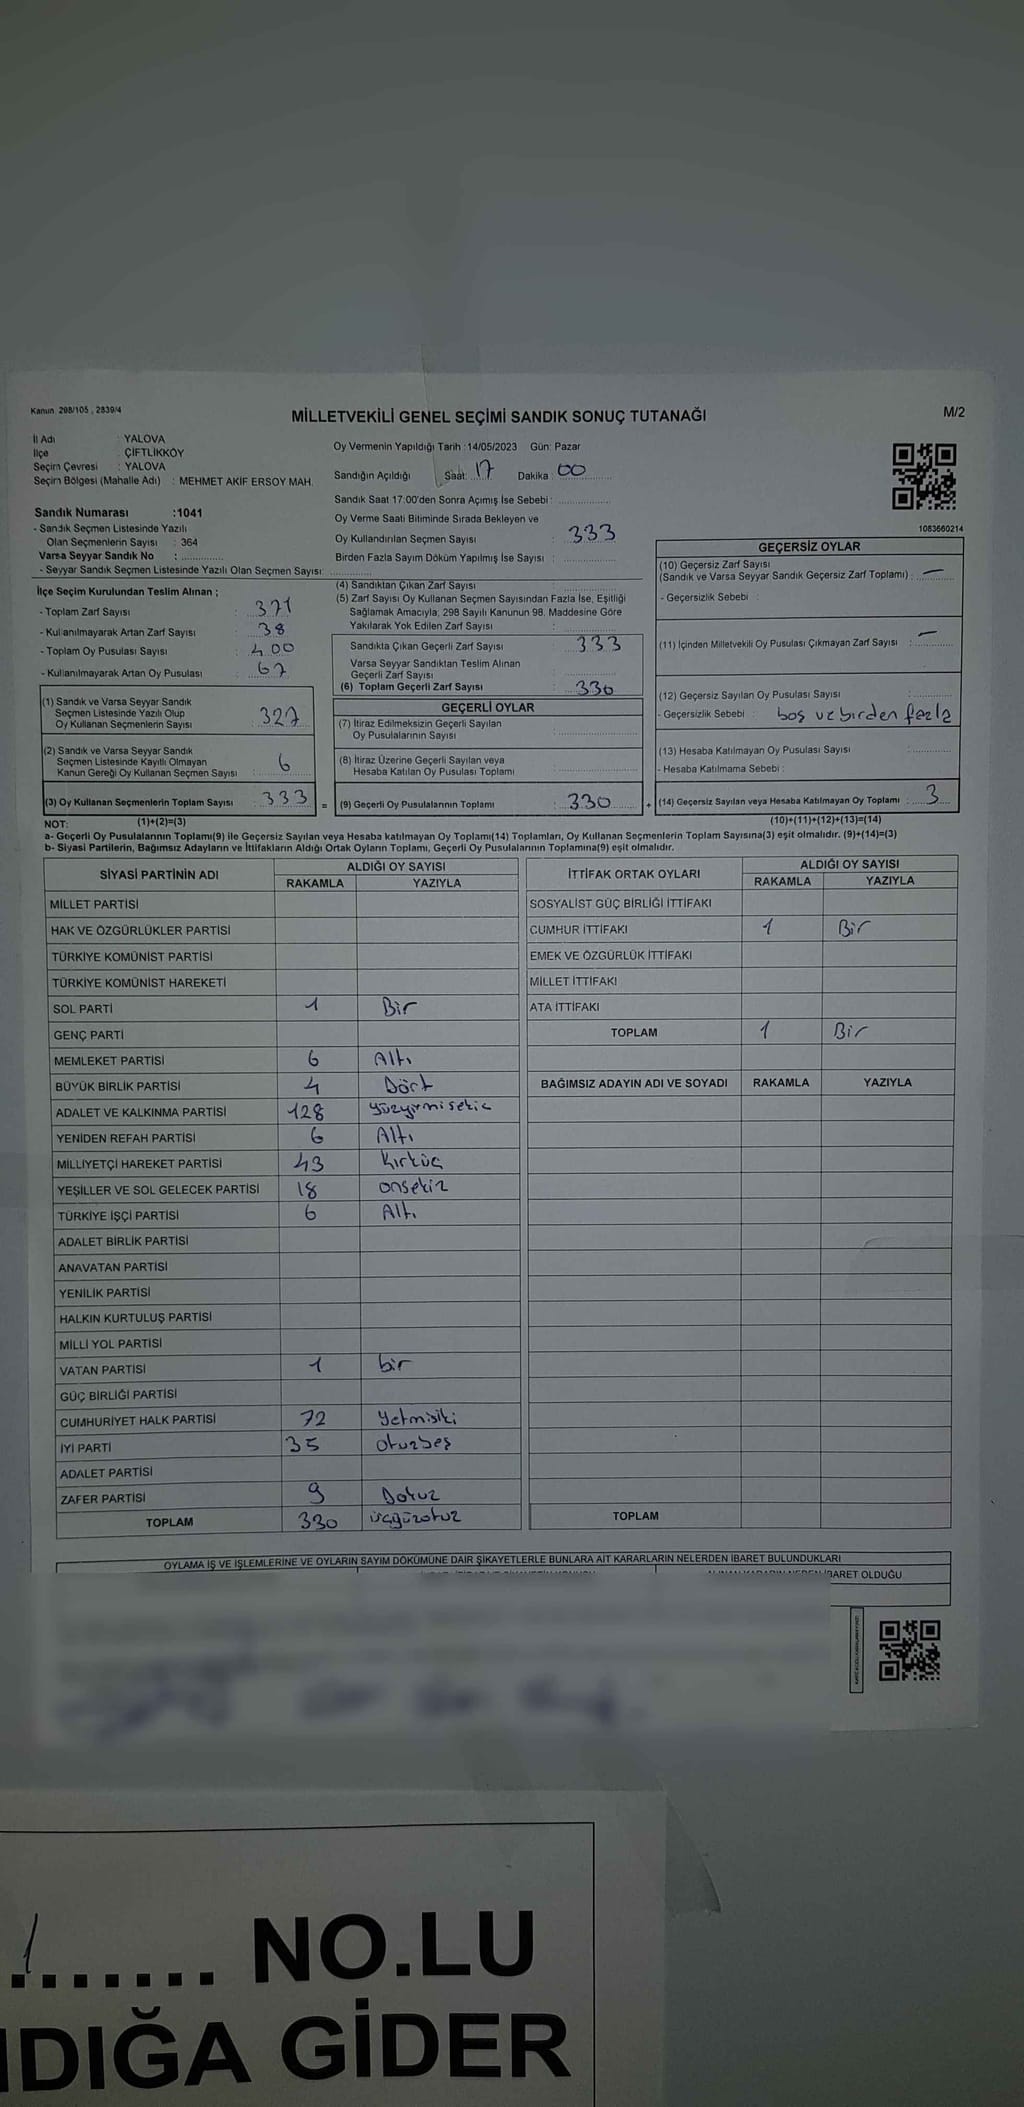 Kanun 298/105 , 2839/4
MİLLETVEKİLİ GENEL SEÇİMİ SANDIK SONUÇ TUTANAĞI
M/2
İl Adı : YALOVA
İlçe : ÇİFTLİKKÖY
Seçim Çevresi : YALOVA
Seçim Bölgesi (Mahalle Adı) : MEHMET AKİF ERSOY MAH.
Sandık Numarası :1041
- Sandık Seçmen Listesinde Yazılı
Olan Seçmenlerin Sayısı : 364
Varsa Seyyar Sandık No :
- Seyyar Sandık Seçmen Listesinde Yazılı Olan Seçmen Sayısı:
Oy Vermenin Yapıldığı Tarih :14/05/2023 Gün: Pazar
Sandığın Açıldığı Saat: 17 Dakika : 00
Sandık Saat 17:00'den Sonra Açımış İse Sebebi :
Oy Verme Saati Bitiminde Sırada Bekleyen ve
Oy Kullandırılan Seçmen Sayısı : 333
Birden Fazla Sayım Döküm Yapılmış İse Sayısı :
1083660214
İlçe Seçim Kurulundan Teslim Alınan ;
- Toplam Zarf Sayısı : 371
- Kullanılmayarak Artan Zarf Sayısı : 38
- Toplam Oy Pusulası Sayısı : 400
- Kullanılmayarak Artan Oy Pusulası : 67
(1) Sandık ve Varsa Seyyar Sandık
Seçmen Listesinde Yazılı Olup
Oy Kullanan Seçmenlerin Sayısı : 327
(2) Sandık ve Varsa Seyyar Sandık
Seçmen Listesinde Kayıtlı Olmayan
Kanun Gereği Oy Kullanan Seçmen Sayısı : 6
(3) Oy Kullanan Seçmenlerin Toplam Sayısı : 333 =
(4) Sandıktan Çıkan Zarf Sayısı :
(5) Zarf Sayısı Oy Kullanan Seçmen Sayısından Fazla İse, Eşitliği
Sağlamak Amacıyla, 298 Sayılı Kanunun 98. Maddesine Göre
Yakılarak Yok Edilen Zarf Sayısı :
Sandıkta Çıkan Geçerli Zarf Sayısı : 333
Varsa Seyyar Sandıktan Teslim Alınan
Geçerli Zarf Sayısı :
(6) Toplam Geçerli Zarf Sayısı : 330
GEÇERLİ OYLAR
(7) İtiraz Edilmeksizin Geçerli Sayılan
Oy Pusulalarının Sayısı :
(8) İtiraz Üzerine Geçerli Sayılan veya
Hesaba Katılan Oy Pusulası Toplamı :
(9) Geçerli Oy Pusulalarının Toplamı : 330 +
GEÇERSİZ OYLAR
(10) Geçersiz Zarf Sayısı
(Sandık ve Varsa Seyyar Sandık Geçersiz Zarf Toplamı) : —
- Geçersizlik Sebebi :
(11) İçinden Milletvekili Oy Pusulası Çıkmayan Zarf Sayısı : —
(12) Geçersiz Sayılan Oy Pusulası Sayısı :
- Geçersizlik Sebebi : boş ve birden fazla
(13) Hesaba Katılmayan Oy Pusulası Sayısı :
- Hesaba Katılmama Sebebi :
(14) Geçersiz Sayılan veya Hesaba Katılmayan Oy Toplamı : 3
NOT: (1)+(2)=(3)
(10)+(11)+(12)+(13)=(14)
a- Geçerli Oy Pusulalarının Toplamı(9) ile Geçersiz Sayılan veya Hesaba katılmayan Oy Toplamı(14) Toplamları, Oy Kullanan Seçmenlerin Toplam Sayısına(3) eşit olmalıdır. (9)+(14)=(3)
b- Siyasi Partilerin, Bağımsız Adayların ve İttifakların Aldığı Ortak Oyların Toplamı, Geçerli Oy Pusulalarının Toplamına(9) eşit olmalıdır.
SİYASİ PARTİNİN ADI
ALDIĞI OY SAYISI
RAKAMLA YAZIYLA
MİLLET PARTİSİ
HAK VE ÖZGÜRLÜKLER PARTİSİ
TÜRKİYE KOMÜNİST PARTİSİ
TÜRKİYE KOMÜNİST HAREKETİ
SOL PARTİ 1 Bir
GENÇ PARTİ
MEMLEKET PARTİSİ 6 Altı
BÜYÜK BİRLİK PARTİSİ 4 Dört
ADALET VE KALKINMA PARTİSİ 128 yüzyirmisekiz
YENİDEN REFAH PARTİSİ 6 Altı
MİLLİYETÇİ HAREKET PARTİSİ 43 kırküç
YEŞİLLER VE SOL GELECEK PARTİSİ 18 onsekiz
TÜRKİYE İŞÇİ PARTİSİ 6 Altı
ADALET BİRLİK PARTİSİ
ANAVATAN PARTİSİ
YENİLİK PARTİSİ
HALKIN KURTULUŞ PARTİSİ
MİLLİ YOL PARTİSİ
VATAN PARTİSİ 1 bir
GÜÇ BİRLİĞİ PARTİSİ
CUMHURİYET HALK PARTİSİ 72 yetmişiki
İYİ PARTİ 35 otuzbeş
ADALET PARTİSİ
ZAFER PARTİSİ 9 Dokuz
TOPLAM 330 üçyüzotuz
İTTİFAK ORTAK OYLARI
ALDIĞI OY SAYISI
RAKAMLA YAZIYLA
SOSYALİST GÜÇ BİRLİĞİ İTTİFAKI
CUMHUR İTTİFAKI 1 Bir
EMEK VE ÖZGÜRLÜK İTTİFAKI
MİLLET İTTİFAKI
ATA İTTİFAKI
TOPLAM 1 Bir
BAĞIMSIZ ADAYIN ADI VE SOYADI RAKAMLA YAZIYLA
TOPLAM
OYLAMA İŞ VE İŞLEMLERİNE VE OYLARIN SAYIM DÖKÜMÜNE DAİR ŞİKAYETLERLE BUNLARA AİT KARARLARIN NELERDEN İBARET BULUNDUKLARI
İBARET OLDUĞU
1....... NO.LU
NDIĞA GİDER